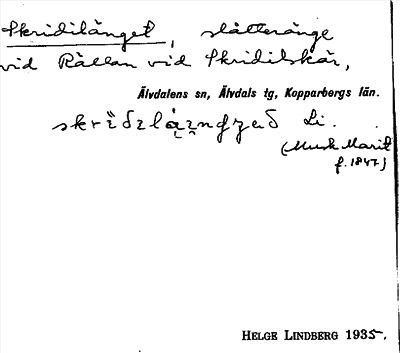 Skridilänget, slåtteränge
vid Rällan vid Skridilskär,
Älvdalens sn, Älvdals tg, Kopparbergs län.
Li.
(Munk Marit
f. 1847)
HELGE LINDBERG 1935.